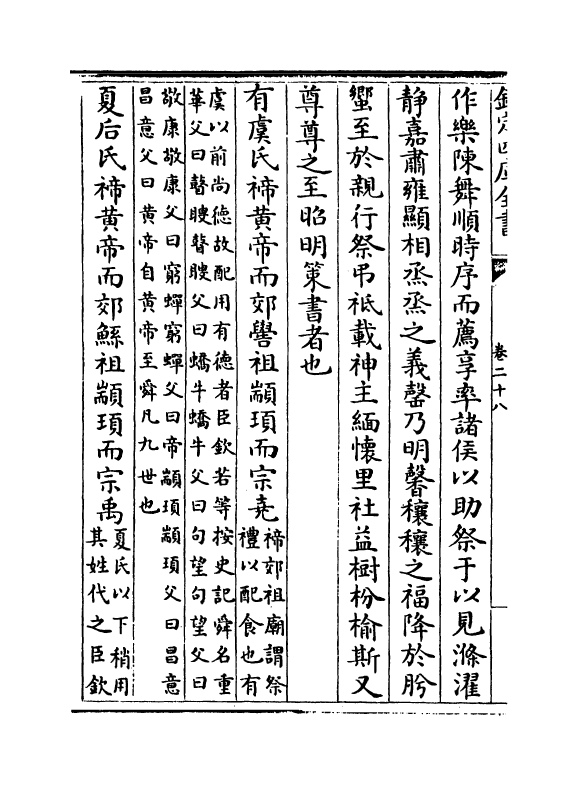 欽定四庫全書
卷二十八
作樂陳舞順時序而薦享率諸侯以助祭于以見滌濯
静嘉肅雍顯相烝烝之義罄乃明馨穰穰之福降於肹
蠁至於親行祭弔祗載神主緬懷里社益樹枌榆斯又
尊尊之至昭明策書者也
有虞氏禘黄帝而郊嚳祖顓頊而宗堯
禘郊祖廟謂祭
禮以配食也有
虞以前尚德故配用有德者臣欽若等按史記舜名重
華父曰瞽瞍瞽瞍父曰蟜牛蟜牛父曰句望句望父曰
敬康敬康父曰窮蟬窮蟬父曰帝顓頊顓頊父曰昌意
昌意父曰黄帝自黄帝至舜凡九世也
夏后氏禘黄帝而郊鯀祖顓頊而宗禹
夏氏以下稍用
其姓代之臣欽